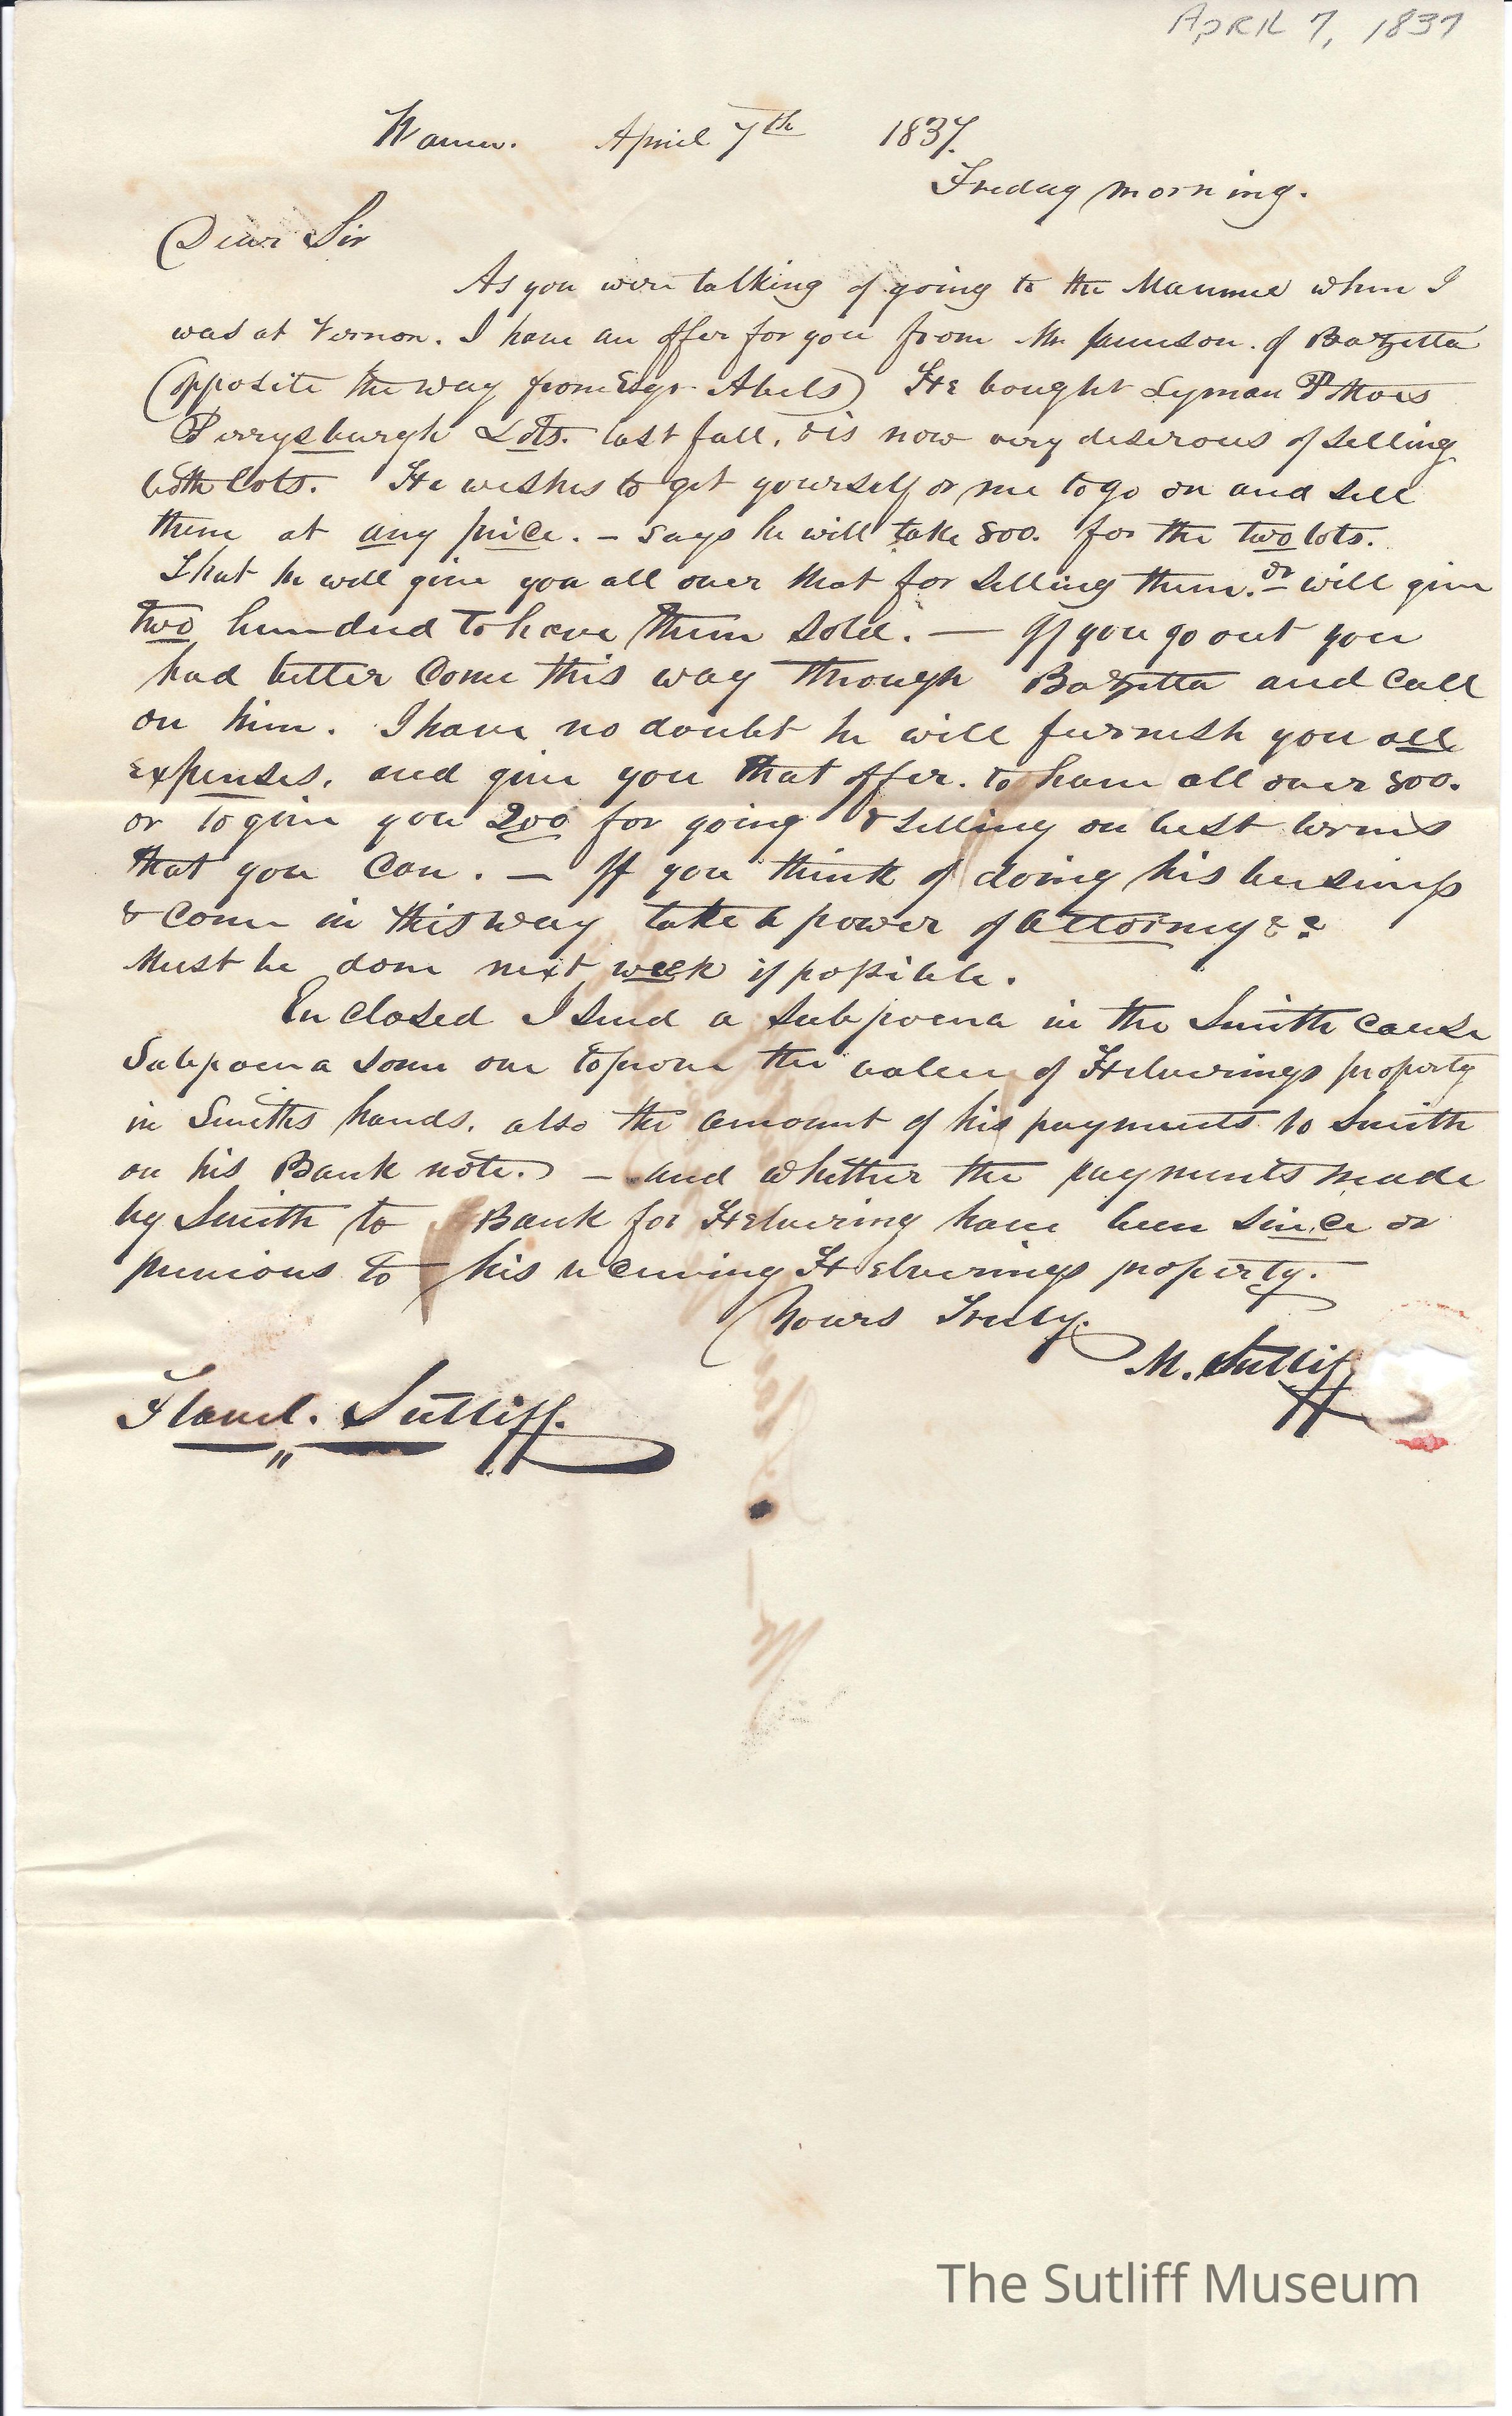 APRIL 7, 1837
Warren. April 7th 1837.
Friday morning.
Dear Sir
As you were talking of going to the Maumee when I
was at Vernon. I have an offer for you from Mr of Bazetta
(opposite the way from Esqr Abels) He bought Lyman
Perrysburgh Lots. last fall, & is now very desirous of selling
both lots. He wishes to get yourself or me to go on and sell
them at any price. – says he will take 800. for the two lots.
That he will give you all over that for selling them. or – will give
two hundred to have them sold. — If you go out you
had better come this way through Bazetta and call
on him. I have no doubt he will furnish you all
expenses, and give you that offer. to have all over 800.
or to give you 200 for going & selling on best terms
that you can. — If you think of doing his business
& come in this way take a power of attorney &c
Must be done next week if possible.
Enclosed I send a subpoena in the Smith cause
Subpoena some one to prove the value of Helverings property
in Smiths hands. also the amount of his payments to Smith
on his Bank note. – and whether the payments made
by Smith to Bank for Helvering have been since or
previous to his receiving Helverings property.
Yours Truly.
M. Sutliff
Flavel. Sutliff.
The Sutliff Museum